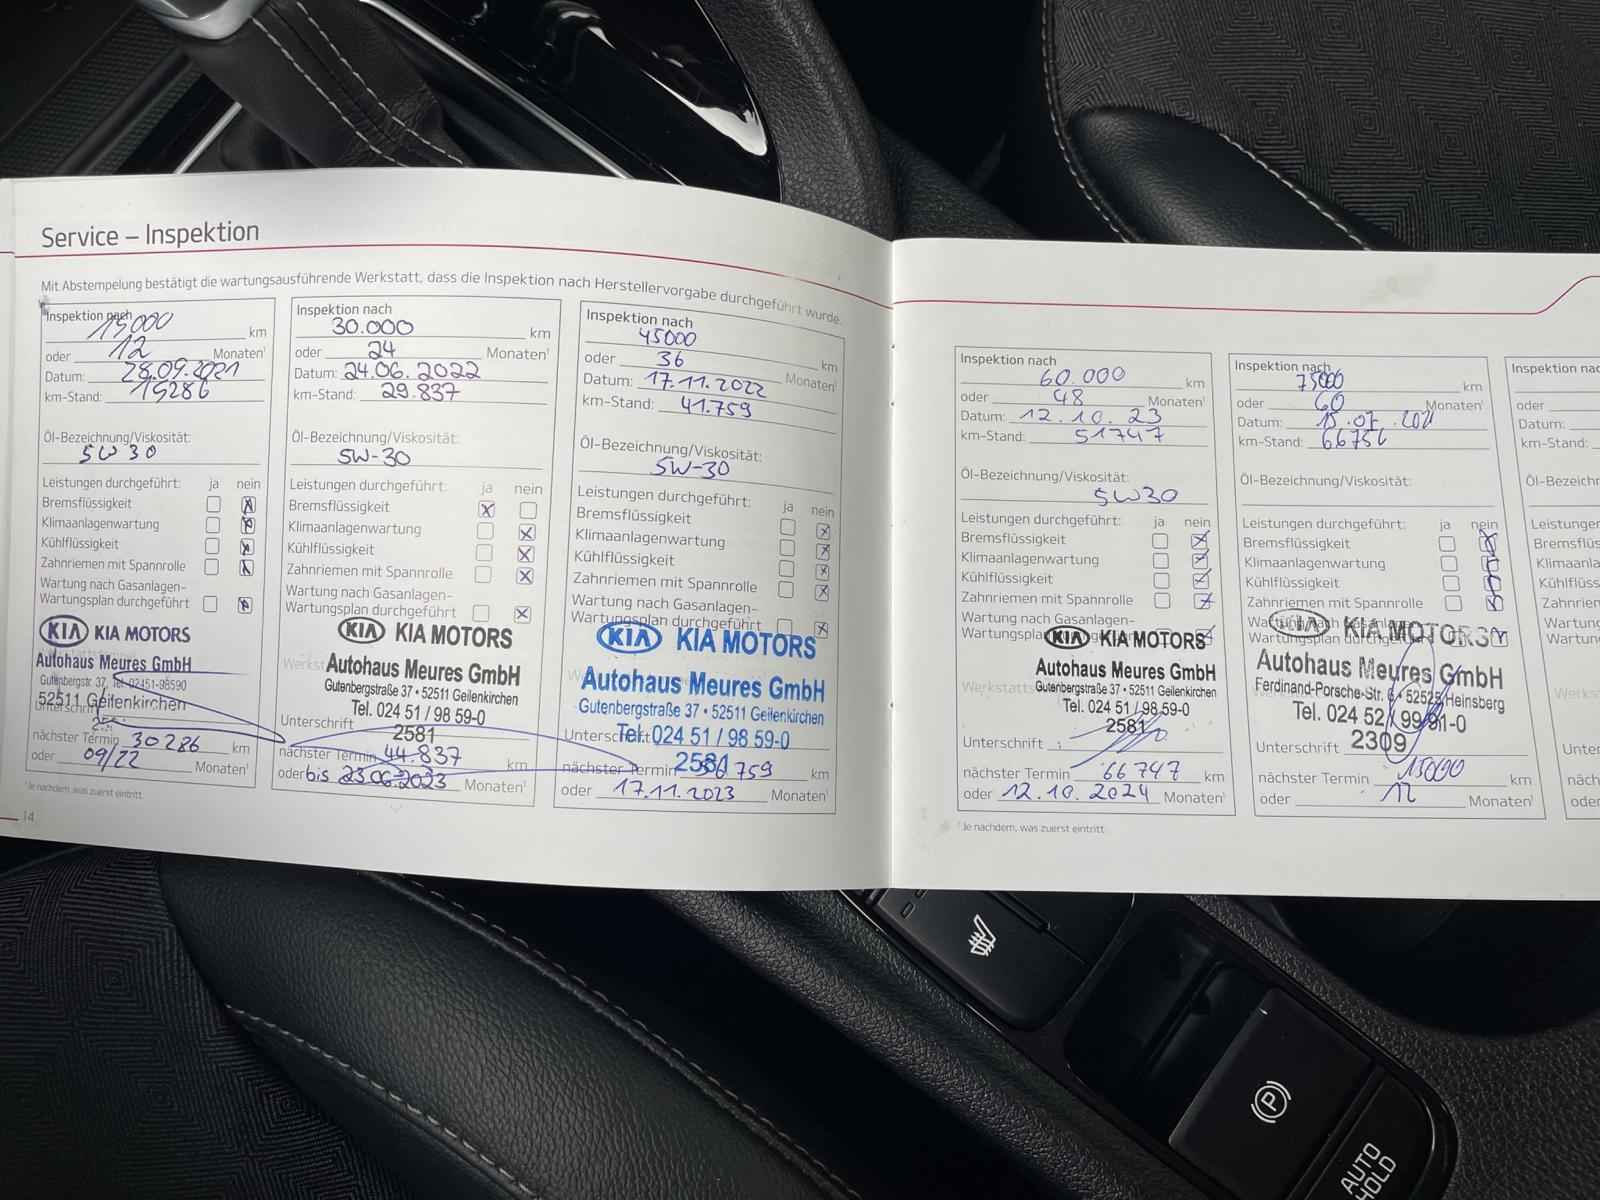 Service – Inspektion
Mit Abstempelung bestätigt die wartungsausführende Werkstatt, dass die Inspektion nach Herstellervorgabe durchgeführt wurde.
Inspektion nach
15000 km
oder 12 Monaten¹
Datum: 28.09.2021
km-Stand: 15286
Öl-Bezeichnung/Viskosität:
5W30
Leistungen durchgeführt: ja nein
Bremsflüssigkeit
Klimaanlagenwartung
Kühlflüssigkeit
Zahnriemen mit Spannrolle
Wartung nach Gasanlagen-
Wartungsplan durchgeführt
KIA KIA MOTORS
Autohaus Meures GmbH
Gutenbergstr. 37, Tel. 02451-98590
52511 Geilenkirchen
Unterschrift
nächster Termin 30286 km
oder 09/22 Monaten¹
¹Je nachdem, was zuerst eintritt.
14
Inspektion nach
30.000 km
oder 24 Monaten¹
Datum: 24.06.2022
km-Stand: 29.837
Öl-Bezeichnung/Viskosität:
5W-30
Leistungen durchgeführt: ja nein
Bremsflüssigkeit
Klimaanlagenwartung
Kühlflüssigkeit
Zahnriemen mit Spannrolle
Wartung nach Gasanlagen-
Wartungsplan durchgeführt
KIA KIA MOTORS
Autohaus Meures GmbH
Gutenbergstraße 37 • 52511 Geilenkirchen
Tel. 024 51 / 98 59-0
Unterschrift 2581
nächster Termin 44.837 km
oder bis 23.06.2023 Monaten¹
Inspektion nach
45000 km
oder 36 Monaten¹
Datum: 17.11.2022
km-Stand: 41.759
Öl-Bezeichnung/Viskosität:
5W-30
Leistungen durchgeführt: ja nein
Bremsflüssigkeit
Klimaanlagenwartung
Kühlflüssigkeit
Zahnriemen mit Spannrolle
Wartung nach Gasanlagen-
Wartungsplan durchgeführt
KIA KIA MOTORS
Autohaus Meures GmbH
Gutenbergstraße 37 • 52511 Geilenkirchen
Unterschrift Tel. 024 51 / 98 59-0
2581
nächster Termin 759 km
oder 17.11.2023 Monaten¹
Inspektion nach
60.000 km
oder 48 Monaten¹
Datum: 12.10.23
km-Stand: 51747
Öl-Bezeichnung/Viskosität:
5W30
Leistungen durchgeführt: ja nein
Bremsflüssigkeit
Klimaanlagenwartung
Kühlflüssigkeit
Zahnriemen mit Spannrolle
Wartung nach Gasanlagen-
KIA KIA MOTORS
Autohaus Meures GmbH
Gutenbergstraße 37 • 52511 Geilenkirchen
Tel. 024 51 / 98 59-0
2581
Unterschrift
nächster Termin 66747 km
oder 12.10.2024 Monaten¹
¹Je nachdem, was zuerst eintritt.
Inspektion nach
75000 km
oder 60 Monaten¹
Datum: 15.07.
km-Stand:
Öl-Bezeichnung/Viskosität:
Leistungen durchgeführt: ja nein
Bremsflüssigkeit
Klimaanlagenwartung
Kühlflüssigkeit
Zahnriemen mit Spannrolle
Wartung nach Gasanlagen-
Wartungsplan durchgeführt
KIA KIA MOTORS
Autohaus Meures GmbH
Ferdinand-Porsche-Str. 6 • 52525 Heinsberg
Tel. 024 52 / 99 91-0
Unterschrift 2309
nächster Termin 15000 km
oder 12 Monaten¹
Inspektion nac
oder
Datum:
km-Stand:
Öl-Bezeichn
Leistungen
Bremsflüss
Klimaanla
Kühlflüssi
Zahnriem
Wartun
AUTO
HOLD